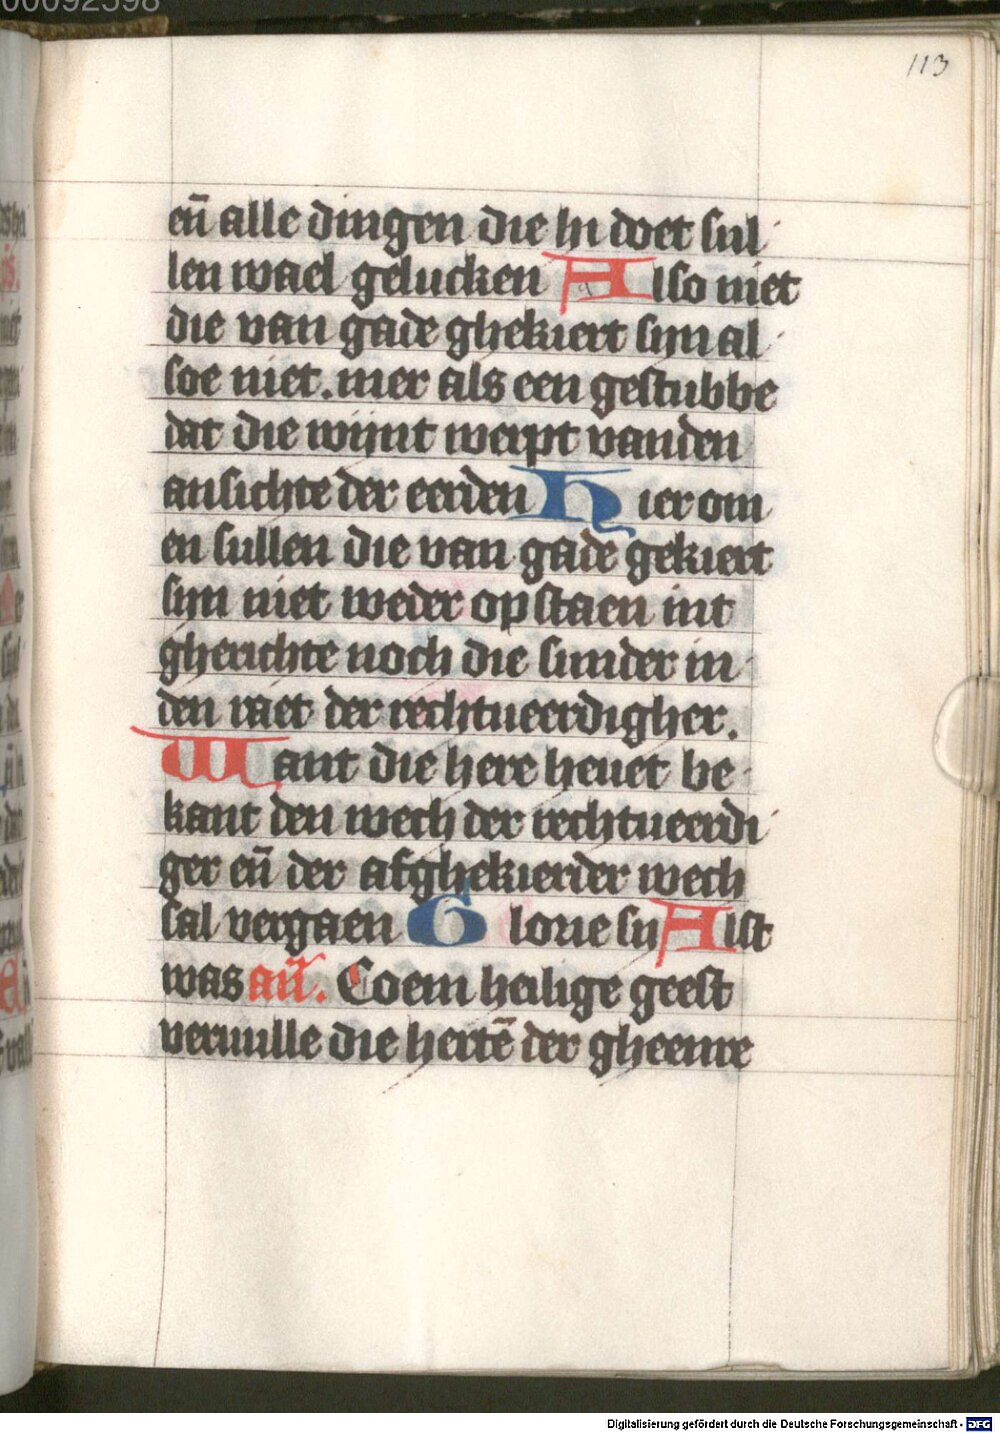 00092598
113
en̄ alle dingen die hi doet sul
len wael gelucken Also niet
die van gade ghekiert sijn al
soe niet. mer als een gestubbe
dat die wijnt werpt vanden
ansichte der eerden Hier om
en sullen die van gade gekiert
sijn niet weder op staen int
gherichte noch die sunder in
den raet der rechtueerdigher.
Want die here heuet be
kant den wech der rechtueerdi
ger en̄ der afghekierder wech
sal vergaen Glorie sy Alst
was an̄. Coem heilige geest
veruulle die hertē der gheenre
Digitalisierung gefördert durch die Deutsche Forschungsgemeinschaft - DFG